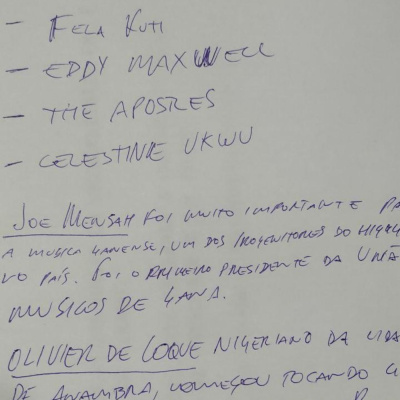 - FELA KUTI
- EDDY MAXWELL
- THE APOSTLES
- CELESTINE UKWU
JOE MENSAH FOI MUITO IMPORTANTE PA
A MUSICA GANENSE, UM DOS PROGENITORES DO HIGH
NO PAÍS. FOI O PRIMEIRO PRESIDENTE DA UNIÃ
MUSICOS DE GANA.
OLIVIER DE COQUE NIGERIANO DA CIDA
DE ANAMBRA, COMEÇOU TOCANDO